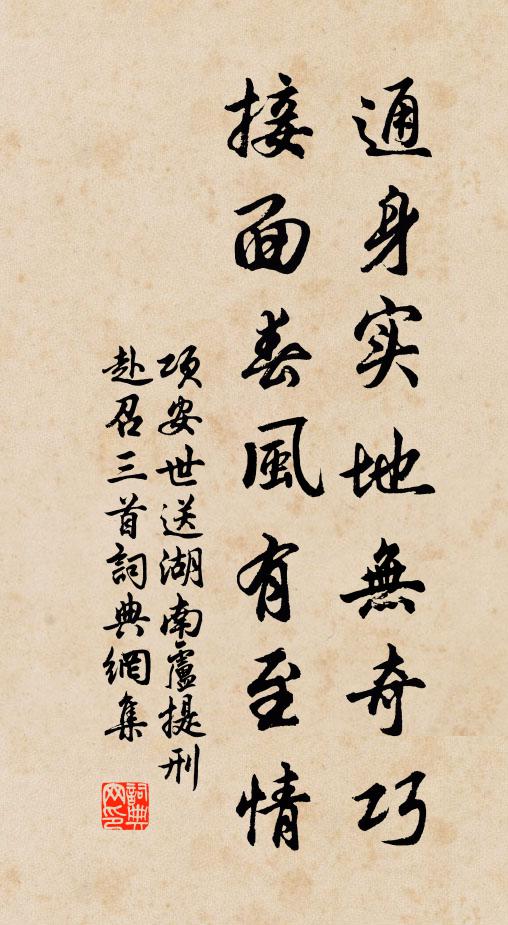 通身实地無奇巧
接面春風有至情
项安世送湖南盧提刑
赴召三首詞典網集
詞典
网印